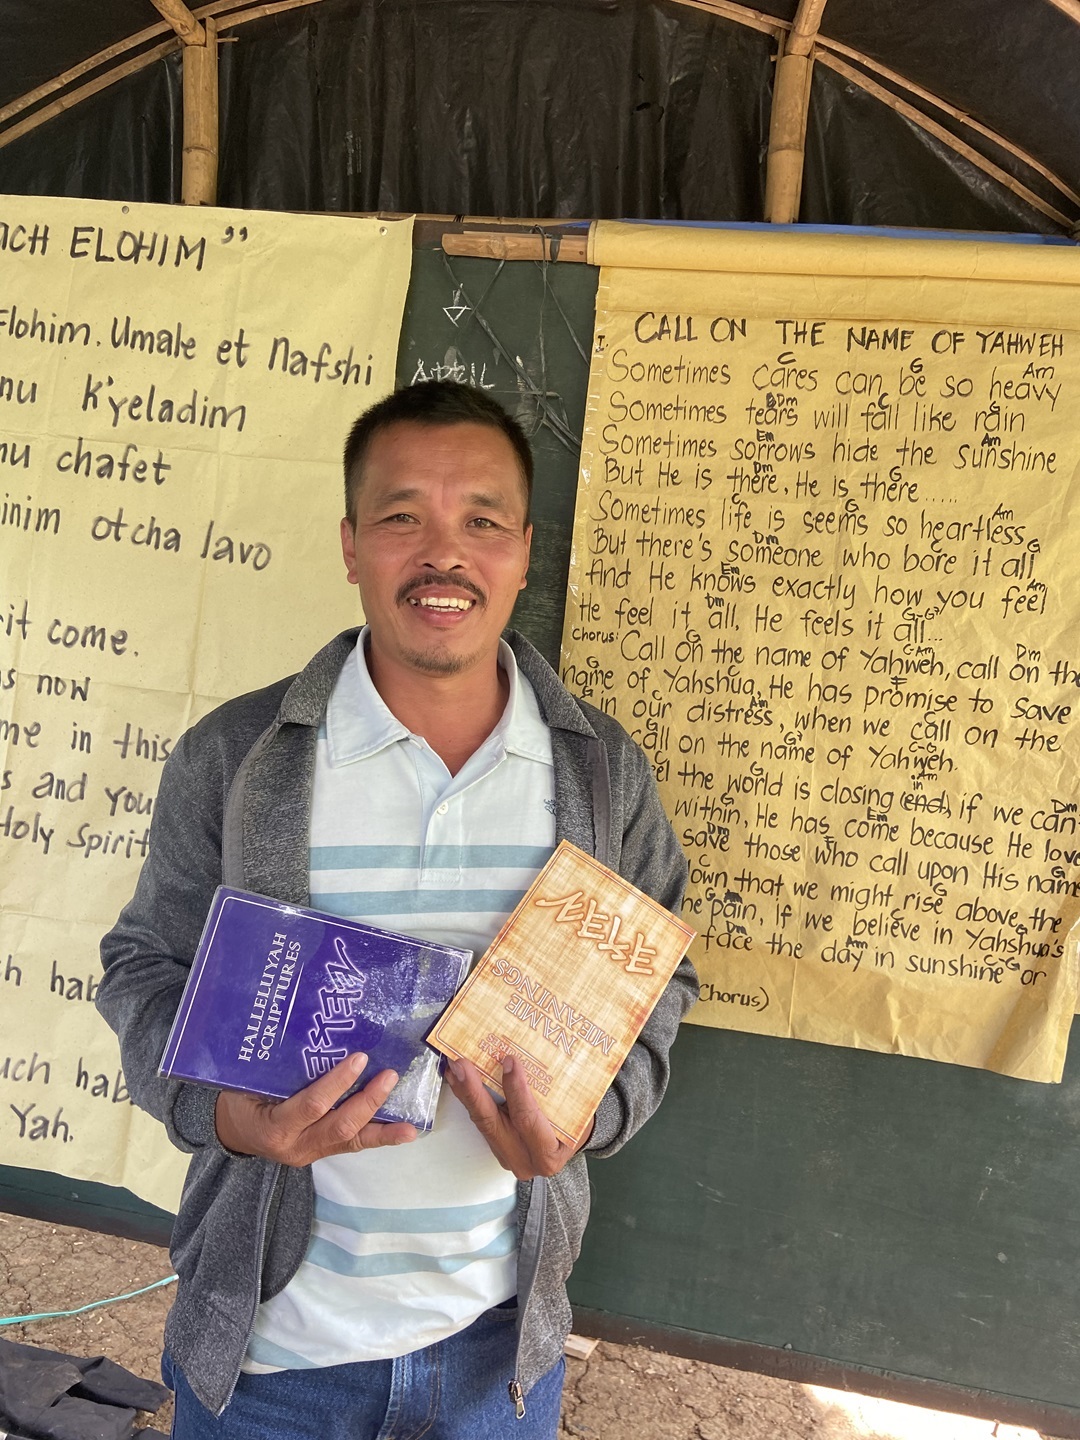 ACH ELOHIM"
Elohim. Umale et Nafshi
nu k'yeladim
nu chafet
inim otcha lavo
rit come.
s now
me in this
s and you
Holy Spirit
ch hab
uch hab
Yah.
APRIL
CALL ON THE NAME OF YAHWEH
I.
C G Am
Sometimes cares can be so heavy
Dm C G
Sometimes tears will fall like rain
Em Am
Sometimes sorrows hide the sunshine
Dm G
But He is there, He is there.....
C G Am
Sometimes life is seems so heartless
Dm C G
But there's someone who bore it all
Em Am
And He knows exactly how you feel
Dm G-G7
He feel it all, He feels it all...
Chorus: G C-Am Dm
Call on the name of Yahweh, call on the
G C F
name of Yahshua, He has promise to save
G C Am C
in our distress, when we call on the
G G7 C-G
call on the name of Yahweh.
G in Am Dm
el the world is closing (end), if we can't
G Em
within, He has come because He love
Dm F G
save those who call upon His name
C G
down that we might rise above the
G Am C G
he pain, if we believe in Yahshua's
Dm Am C-G
face the day in sunshine or
Chorus)
HALLELUYAH
SCRIPTURES
𐤉𐤄𐤅𐤄
𐤉𐤄𐤅𐤄
NAME
MEANINGS
HALLELUYAH
SCRIPTURES